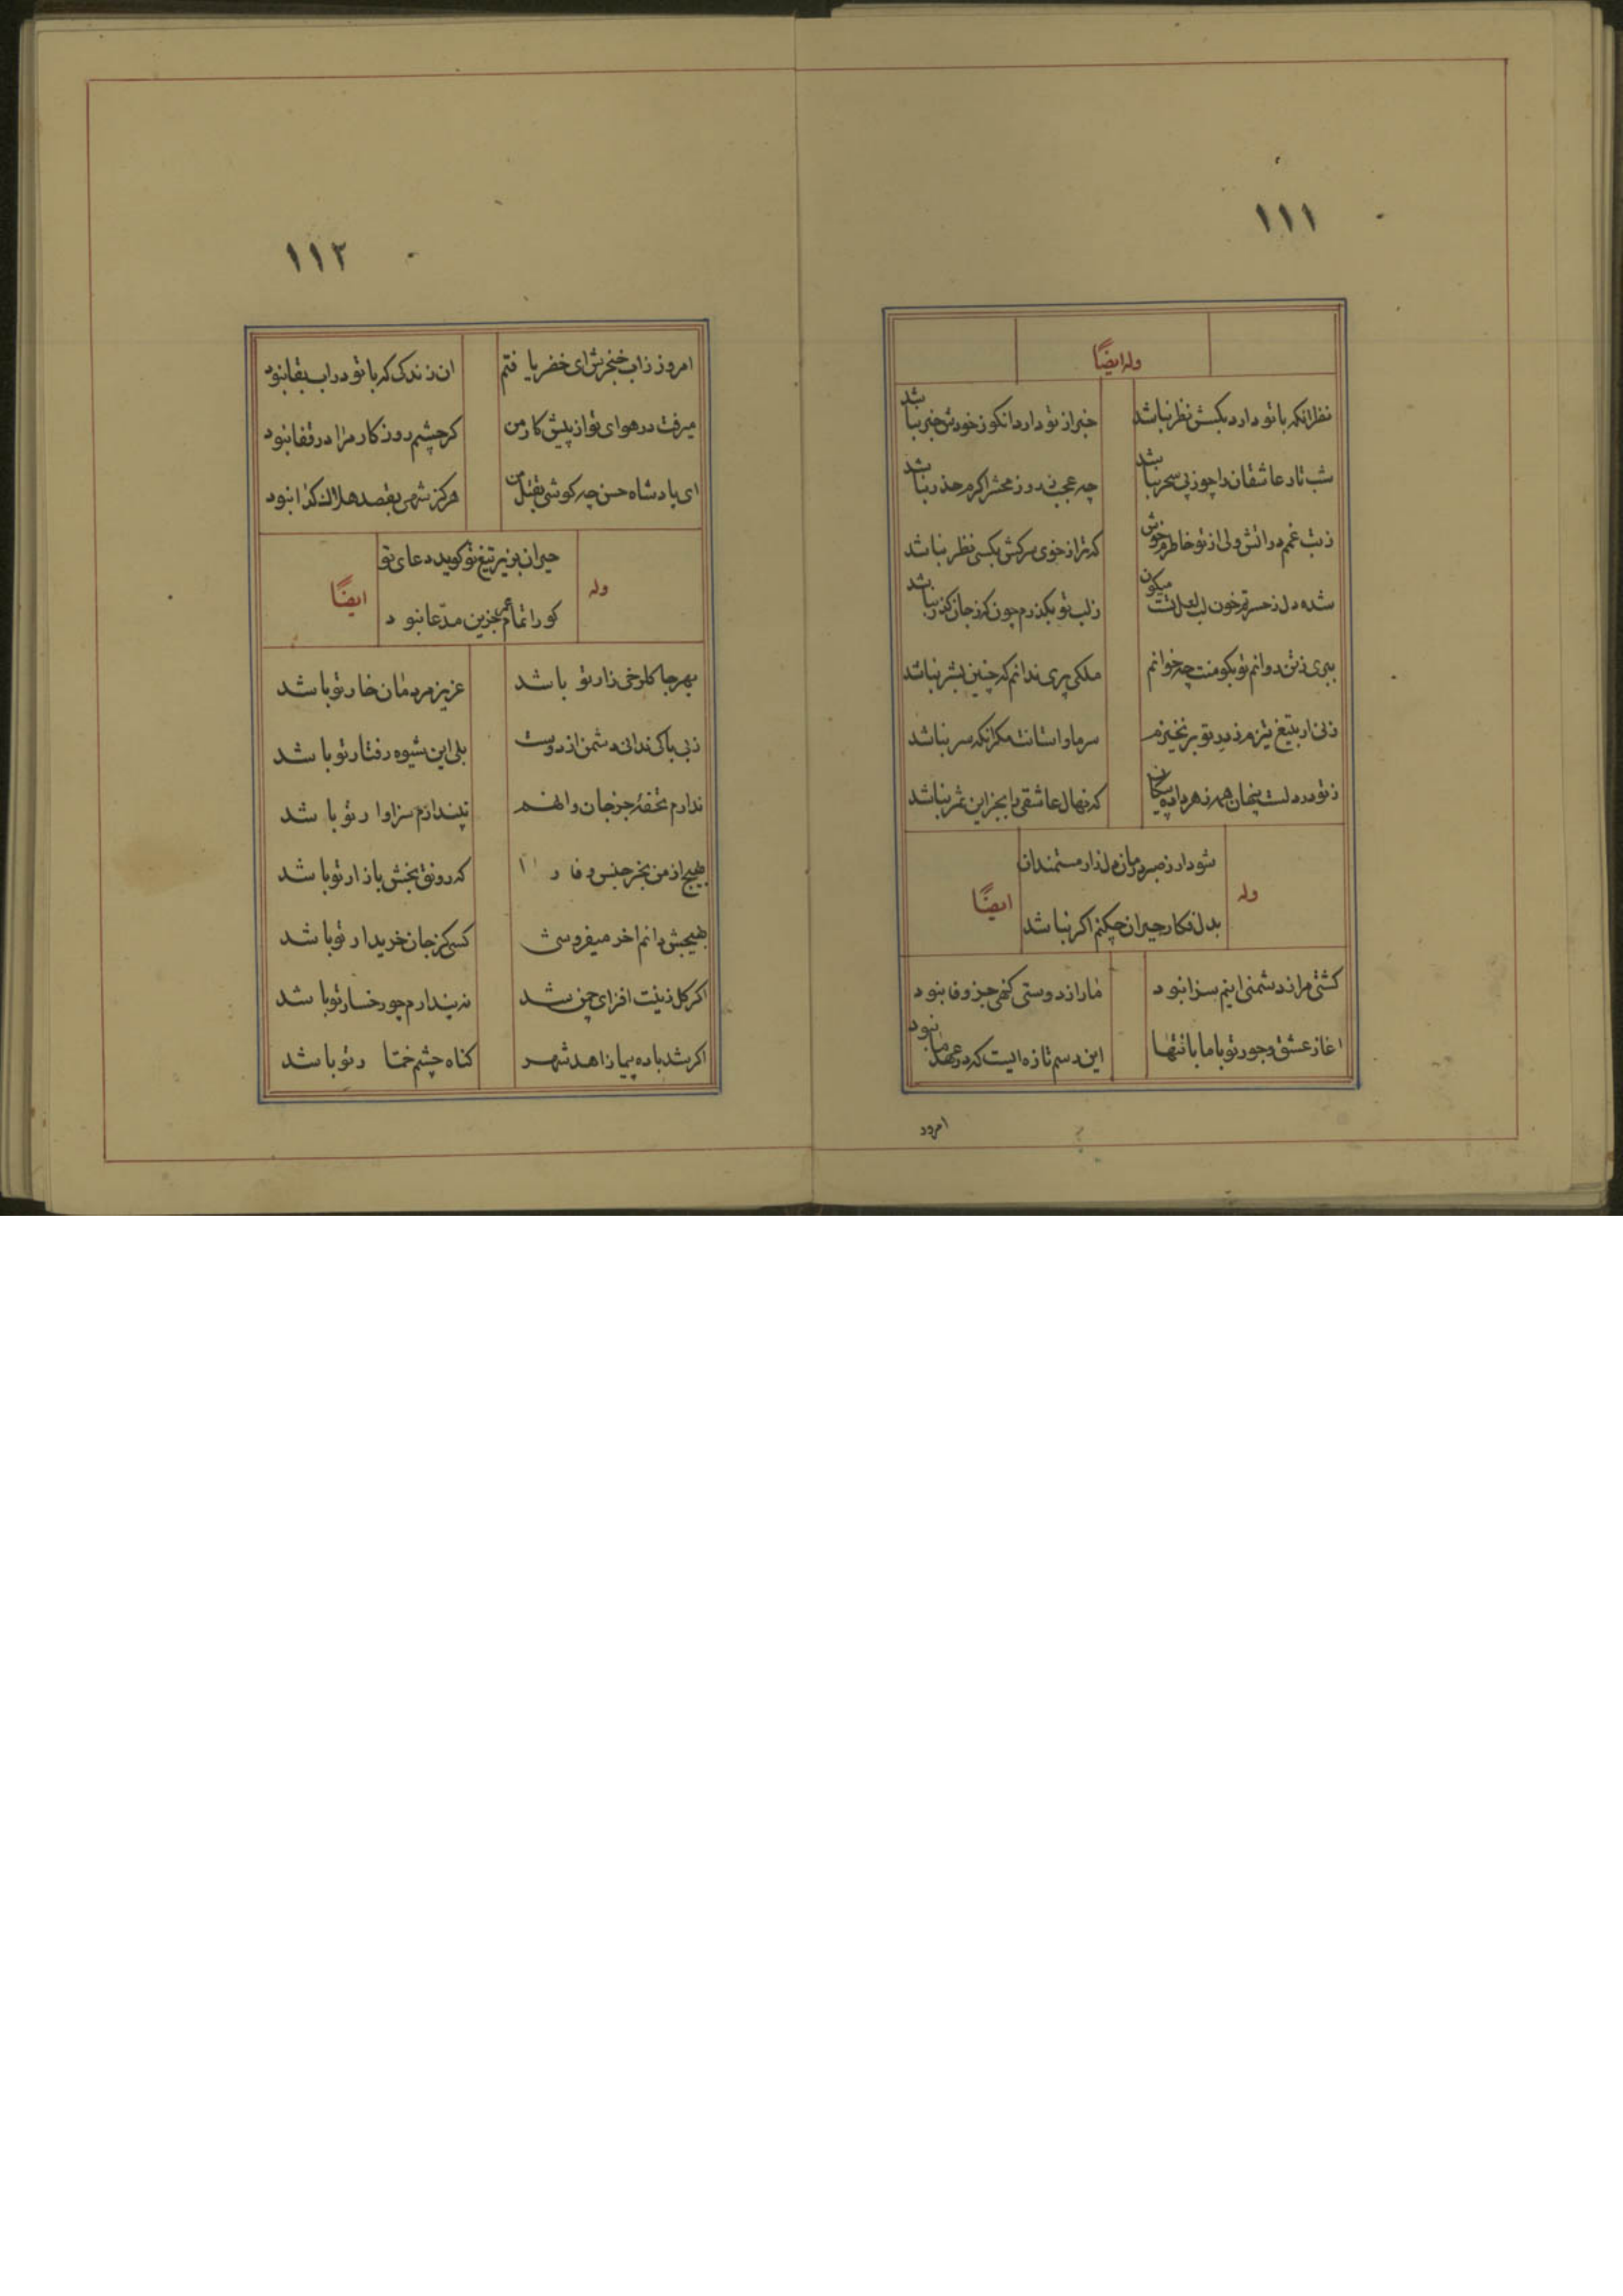 ۱۱۱
وله ایضًا
نظر انکه با تو دارد بکسش نظر نباشد
خبر از تو دارد انکو ز خودش خبر نباشد
شب تار عاشقان را چو ز پی سحر نباشد
چه عجب ز روز محشر اکرم حذر نباشد
ز تب غمم در اتش ولی از تو خاطرم خوش
که ترا ز خوی سرکش بکسی نظر نباشد
شده دل ز حسرتم خون لب لعل تست میکون
ز لب تو بکذرم چون که ز جان کذر نباشد
ببری ز تن روانم تو بکو منت چه خوانم
ملکی پری ندانم که چنین بشر نباشد
زنی ار بتیغ تیزم ز در تو بر نخیزم
سر ما و استانت مکر انکه سر نباشد
ز تو در دلست پنهان همه زهر داده پیکان
که نهال عاشقی را بجز این ثمر نباشد
شود ار ز صبر درمان دل زار مستمندان
وله
ایضًا
بدل فکار حیران چکنم اکر نباشد
کشتی مرا ز دشمنی اینم سزا نبود
ما را ز دوستی کنهی جز وفا نبود
اغاز عشق و جور تو با ما بانتها
این رسم تازه ایست که در عهد ما نبود
امروز
۱۱۲
امروز زاب خنجرش ای خضر یا فتم
ان زندکی که با تو در اب بقا نبود
میرفت در هوای تو از پیش کار من
کر چشم روزکار مرا در قفا نبود
ای پادشاه حسن چه کوشی بقتل من
هرکز شهی بقصد هلاک کدا نبود
حیران بزیر تیغ تو کوید دعای تو
وله
ایضًا
کو را تمام عمر جز این مدّعا نبود
بهر جا کلرخی زار تو باشد
عزیز مردمان خار تو باشد
ز بی باکی ندانی دشمن از دوست
بلی این شیوه رفتار تو باشد
ندارم تحفهٔ جز جان و انهم
نپندارم سزاوار تو باشد
بهیچ از من بخر جنس وفا را
که رونق بخش بازار تو باشد
بهیچش دانم اخر میفروشی
کسی کز جان خریدار تو باشد
اکر کل زینت افزای چمن شد
نه پندارم چو رخسار تو باشد
اکر شد باده پیما زاهد شهر
کناه چشم خمّار تو باشد